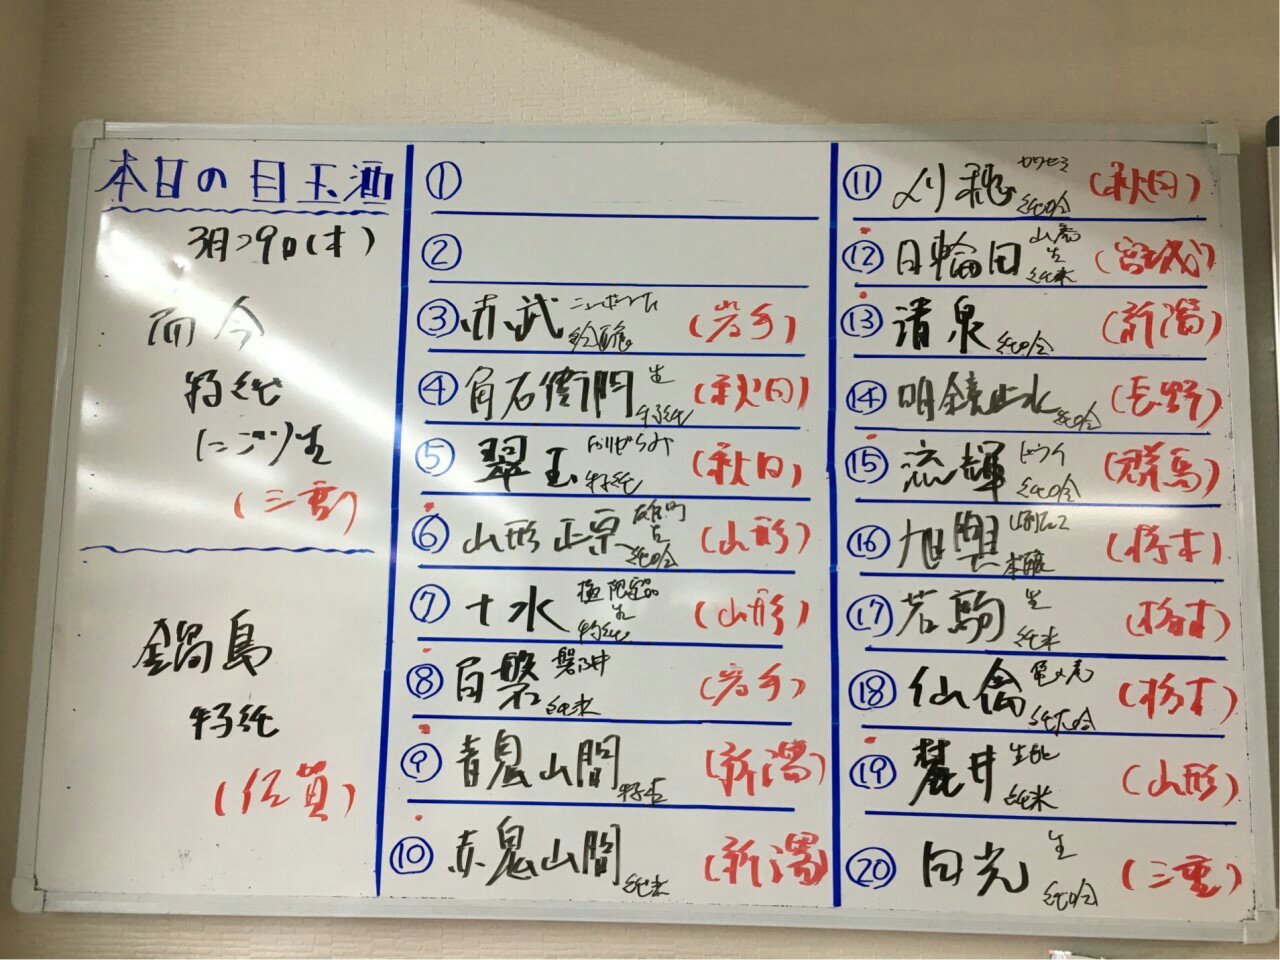 本日の目玉酒
3月29日(木)
而今
特純
にごり生
(三重)
鍋島
特純
(佐賀)
①
②
③ 赤武 吟醸 (岩手)
④ 角右衛門 生 特純 (秋田)
⑤ 翠玉 特純 (秋田)
⑥ 山形正宗 雄町 純吟 (山形)
⑦ 十水 生 特純 (山形)
⑧ 百磐 磐乃井 純米 (岩手)
⑨ 青鬼山間 (新潟)
⑩ 赤鬼山間 純米 (新潟)
⑪ 刈穂 カワセミ 純吟 (秋田)
⑫ 日輪田 山廃 生 純米 (宮城)
⑬ 清泉 純吟 (新潟)
⑭ 明鏡止水 純吟 (長野)
⑮ 流輝 純吟 (群馬)
⑯ 旭興 本醸 (栃木)
⑰ 若駒 生 純米 (栃木)
⑱ 仙禽 亀ノ尾 純大吟 (栃木)
⑲ 麓井 生酛 純米 (山形)
⑳ 田光 生 純吟 (三重)